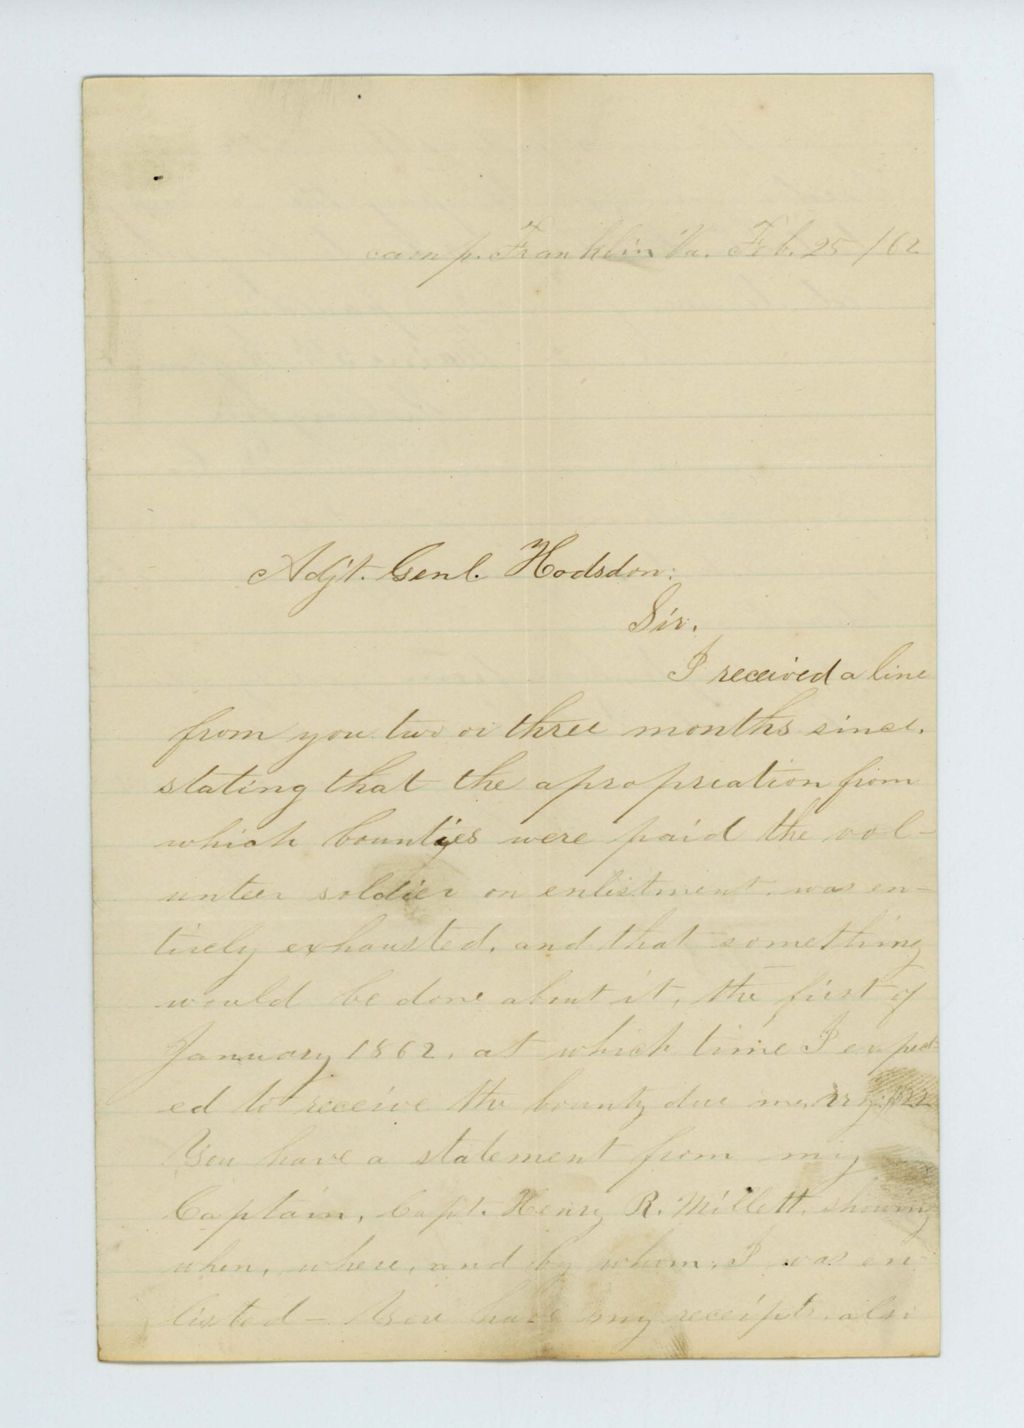 camp. Franklin Va. Feb. 25 /62
Adj't. Genl. Hodsdon:
Sir.
I received a line
from you two or three months since,
stating that the apropreation from
which bounties were paid the vol-
unteer soldier on enlistment. was en-
tirely exhausted, and that something
would be done about it, the first of
January 1862, at which time I expect-
ed to receive the bounty due me,
You have a statement from my
Captain, Capt. Henry R. Millett, showing
when, where, and by whom, I was en-
listed – You have my receipt also